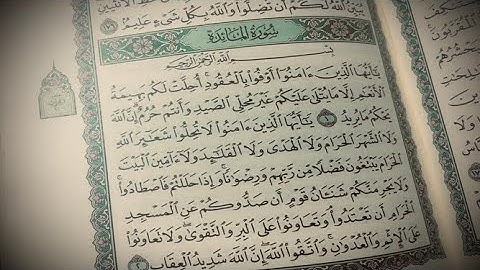 يُبَيِّنُ ٱللَّهُ لَكُمْ أَن تَضِلُّوا۟ وَٱللَّهُ بِكُلِّ شَىْءٍ عَلِيمٌۢ ١٧٦
سُورَةُ المَائِدَةِ
بِسْمِ ٱللَّهِ ٱلرَّحْمَٰنِ ٱلرَّحِيمِ
يَٰٓأَيُّهَا ٱلَّذِينَ ءَامَنُوٓا۟ أَوْفُوا۟ بِٱلْعُقُودِ أُحِلَّتْ لَكُم بَهِيمَةُ
ٱلْأَنْعَٰمِ إِلَّا مَا يُتْلَىٰ عَلَيْكُمْ غَيْرَ مُحِلِّى ٱلصَّيْدِ وَأَنتُمْ حُرُمٌ إِنَّ ٱللَّهَ
يَحْكُمُ مَا يُرِيدُ ١ يَٰٓأَيُّهَا ٱلَّذِينَ ءَامَنُوا۟ لَا تُحِلُّوا۟ شَعَٰٓئِرَ ٱللَّهِ
وَلَا ٱلشَّهْرَ ٱلْحَرَامَ وَلَا ٱلْهَدْىَ وَلَا ٱلْقَلَٰٓئِدَ وَلَآ ءَآمِّينَ ٱلْبَيْتَ
ٱلْحَرَامَ يَبْتَغُونَ فَضْلًا مِّن رَّبِّهِمْ وَرِضْوَٰنًا وَإِذَا حَلَلْتُمْ فَٱصْطَادُوا۟
وَلَا يَجْرِمَنَّكُمْ شَنَـَٔانُ قَوْمٍ أَن صَدُّوكُمْ عَنِ ٱلْمَسْجِدِ
ٱلْحَرَامِ أَن تَعْتَدُوا۟ وَتَعَاوَنُوا۟ عَلَى ٱلْبِرِّ وَٱلتَّقْوَىٰ وَلَا تَعَاوَنُوا۟
عَلَى ٱلْإِثْمِ وَٱلْعُدْوَٰنِ وَٱتَّقُوا۟ ٱللَّهَ إِنَّ ٱللَّهَ شَدِيدُ ٱلْعِقَابِ ٢